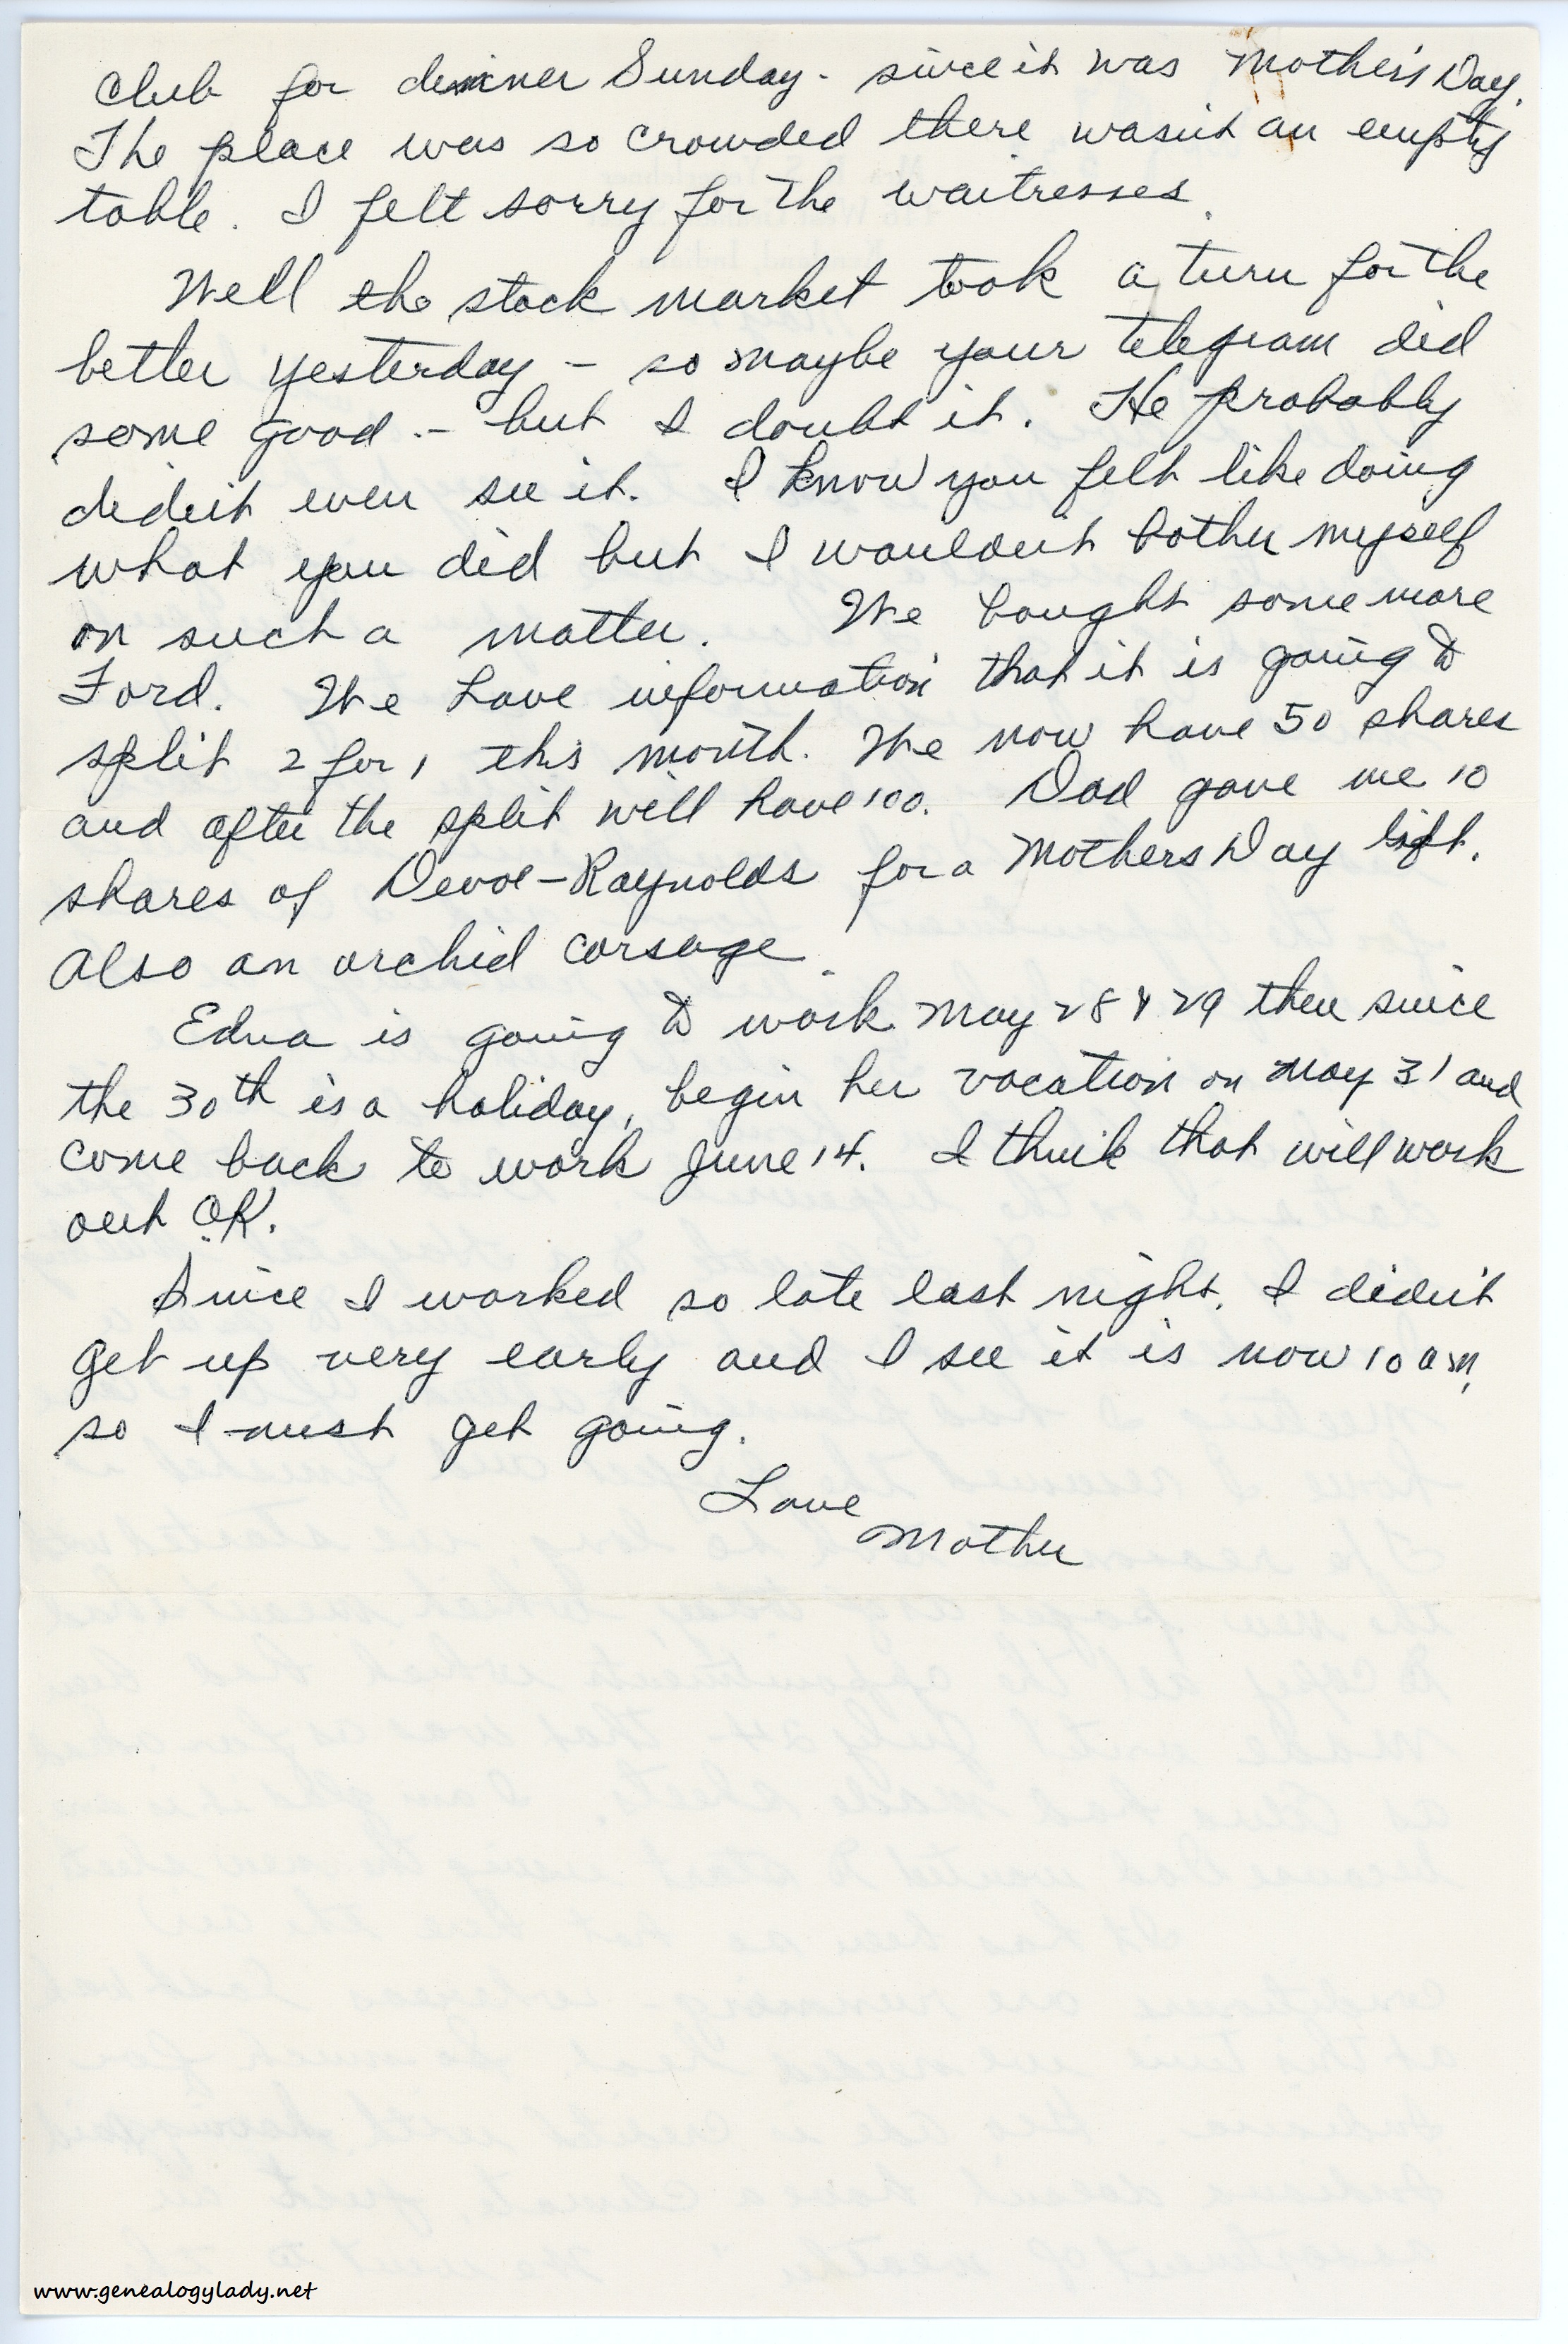 Club for dinner Sunday - since it was Mother's Day.
The place was so crowded there wasn't an empty
table. I felt sorry for the waitresses.
Well the stock market took a turn for the
better yesterday - so maybe your telegram did
some good - but I doubt it. He probably
didn't even see it. I know you felt like doing
what you did but I wouldn't bother myself
on such a matter. We bought some more
Ford. We have information that it is going to
split 2 for 1 this month. We now have 50 shares
and after the split will have 100. Dad gave me 10
shares of Devoe-Raynolds for a Mothers Day Gift.
Also an orchid corsage.
Edna is going to work May 28 & 29 then since
the 30th is a holiday, begin her vacation on May 31 and
come back to work June 14. I think that will work
out O.K.
Since I worked so late last night, I didn't
get up very early and I see it is now 10 am,
so I must get going.
Love
Mother
www.genealogylady.net